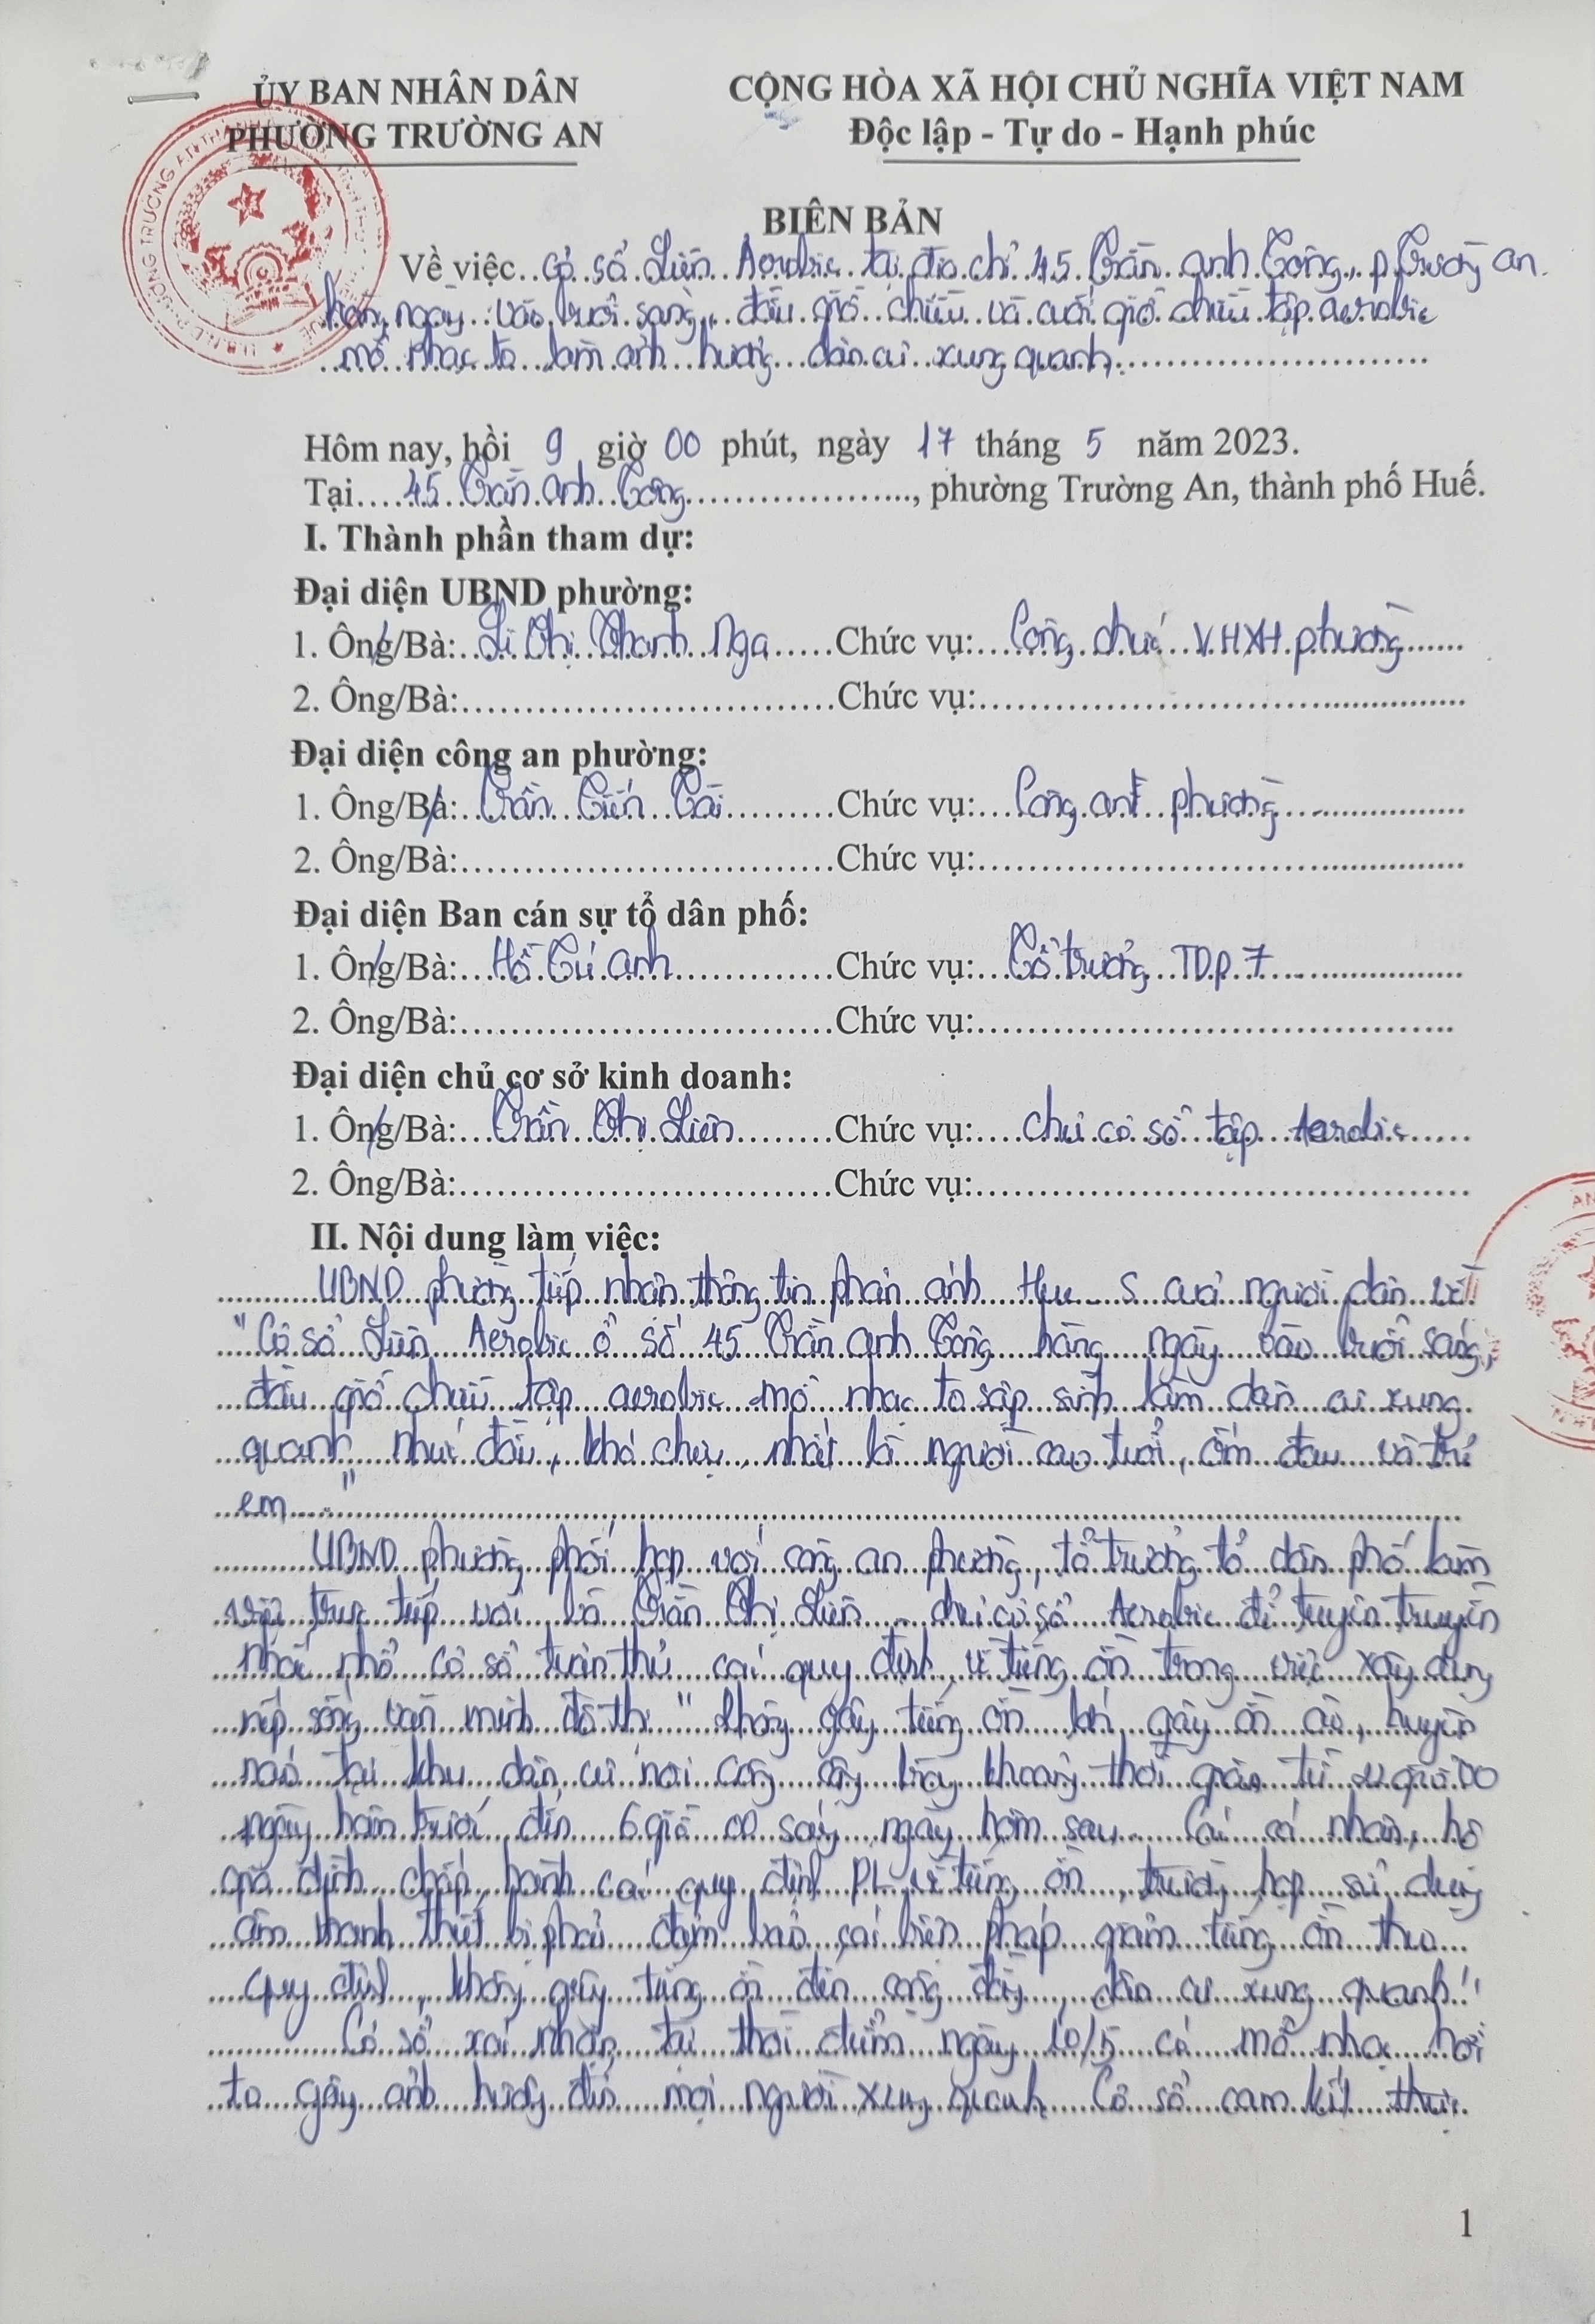 ỦY BAN NHÂN DÂN
PHƯỜNG TRƯỜNG AN
CỘNG HÒA XÃ HỘI CHỦ NGHĨA VIỆT NAM
Độc lập - Tự do - Hạnh phúc
BIÊN BẢN
Về việc..Cơ sở Liên Aerobic tại địa chỉ 45 Trần Anh Tông, p. Trường An.
hàng ngày vào buổi sáng, đầu giờ chiều và cuối giờ chiều tập aerobic
mở nhạc to làm ảnh hưởng dân cư xung quanh.
Hôm nay, hồi 9 giờ 00 phút, ngày 17 tháng 5 năm 2023.
Tại....45 Trần Anh Tông..................., phường Trường An, thành phố Huế.
I. Thành phần tham dự:
Đại diện UBND phường:
1. Ông/Bà:..Lê Thị Thanh Nga.....Chức vụ:...Công chức VHXH phường......
2. Ông/Bà:..............................Chức vụ:..............................
Đại diện công an phường:
1. Ông/Bà:..Trần Tiến Tài.........Chức vụ:...Công an phường................
2. Ông/Bà:..............................Chức vụ:..............................
Đại diện Ban cán sự tổ dân phố:
1. Ông/Bà:...Hồ Tú Anh.............Chức vụ:...Tổ trưởng TDP 7..................
2. Ông/Bà:..............................Chức vụ:..............................
Đại diện chủ cơ sở kinh doanh:
1. Ông/Bà:...Trần Thị Liên.........Chức vụ:....chủ cơ sở tập Aerobic.....
2. Ông/Bà:..............................Chức vụ:..............................
II. Nội dung làm việc:
UBND phường tiếp nhận thông tin phản ánh Hue S của người dân về
"Cơ sở Liên Aerobic ở số 45 Trần Anh Tông hàng ngày vào buổi sáng,
đầu giờ chiều tập aerobic mở nhạc to sập sình làm dân cư xung
quanh nhức đầu, khó chịu, nhất là người cao tuổi, ốm đau và trẻ
em...."
UBND phường phối hợp với công an phường, tổ trưởng tổ dân phố làm
việc trực tiếp với bà Trần Thị Liên chủ cơ sở Aerobic để tuyên truyền
nhắc nhở cơ sở tuân thủ các quy định về tiếng ồn trong việc xây dựng
nếp sống văn minh đô thị "Không gây tiếng ồn lớn, gây ồn ào, huyên
náo tại khu dân cư nơi công cộng trong khoảng thời gian từ 22 giờ 00
ngày hôm trước đến 6 giờ 00 sáng ngày hôm sau. Các cá nhân, hộ
gia đình chấp hành các quy định PL về tiếng ồn, trường hợp sử dụng
âm thanh thiết bị phải đảm bảo các biện pháp giảm tiếng ồn theo
quy định, không gây tiếng ồn đến cộng đồng, dân cư xung quanh".
Cơ sở xác nhận tại thời điểm ngày 10/5 có mở nhạc hơi
to gây ảnh hưởng đến mọi người xung quanh. Cơ sở cam kết thực
1